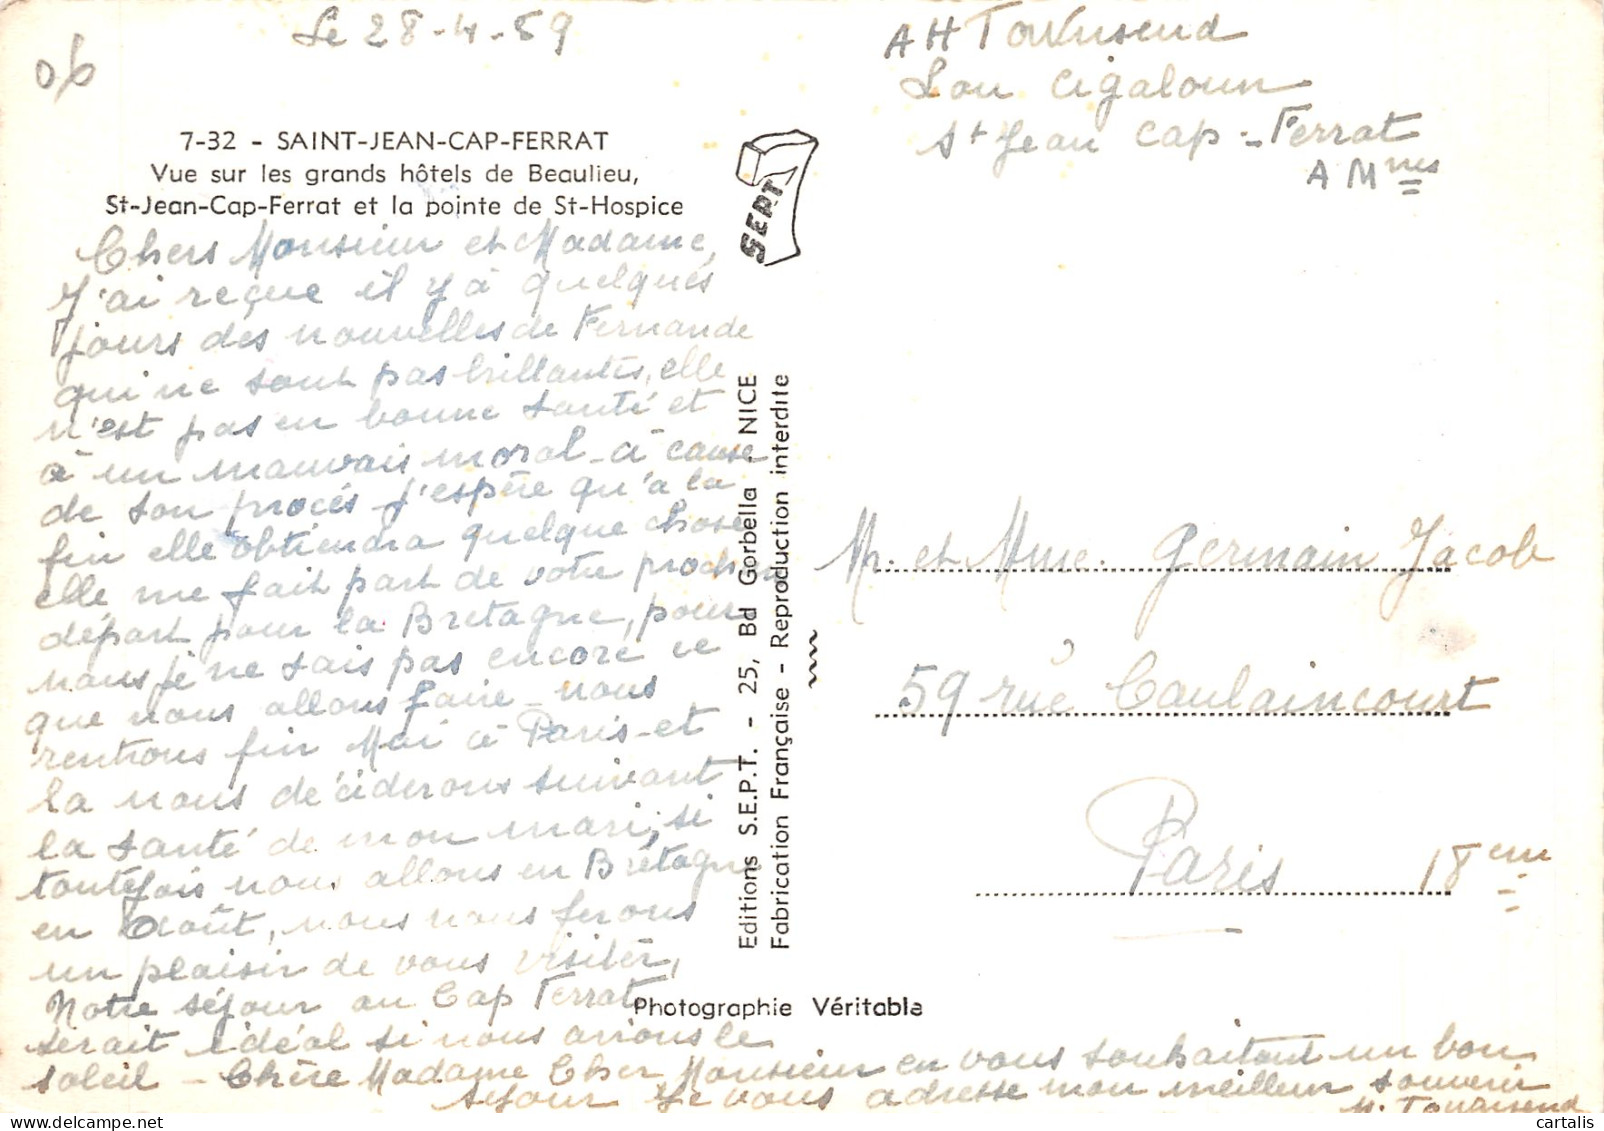 Le 28-4-59
06
7-32 - SAINT-JEAN-CAP-FERRAT
Vue sur les grands hôtels de Beaulieu,
St-Jean-Cap-Ferrat et la pointe de St-Hospice
Chers Monsieur et Madame,
J'ai reçue il y à quelques
jours des nouvelles de Fernande
qui ne sont pas brillantes, elle
n'est pas en bonne santé et
à un mauvais moral à cause
de son procés j'espère qu'a la
fin elle obtiendra quelque chose
elle me fait part de votre prochain
départ pour la Bretagne, pour
nous je ne sais pas encore ce
que nous allons faire nous
rentrons fin Mai à Paris et
la nous déciderons suivant
la santé de mon mari, si
toutefois nous allons en Bretagne
en Août, nous nous ferons
un plaisir de vous visiter,
Notre séjour au Cap Ferrat
serait idéal si nous avions le
soleil - Chère Madame Cher Monsieur en vous souhaitant un bon
séjour Je vous adresse mon meilleur souvenir
M. Townsend
SEPT
Editions S.E.P.T. - 25, Bd Gorbella - NICE
Fabrication Française - Reproduction interdite
Photographie Véritable
A H Townsend
Lou Cigaloun
St Jean Cap-Ferrat
A Mmes
Mr. et Mme. Germain Jacob
59 rue Caulaincourt
Paris 18em
cartalis